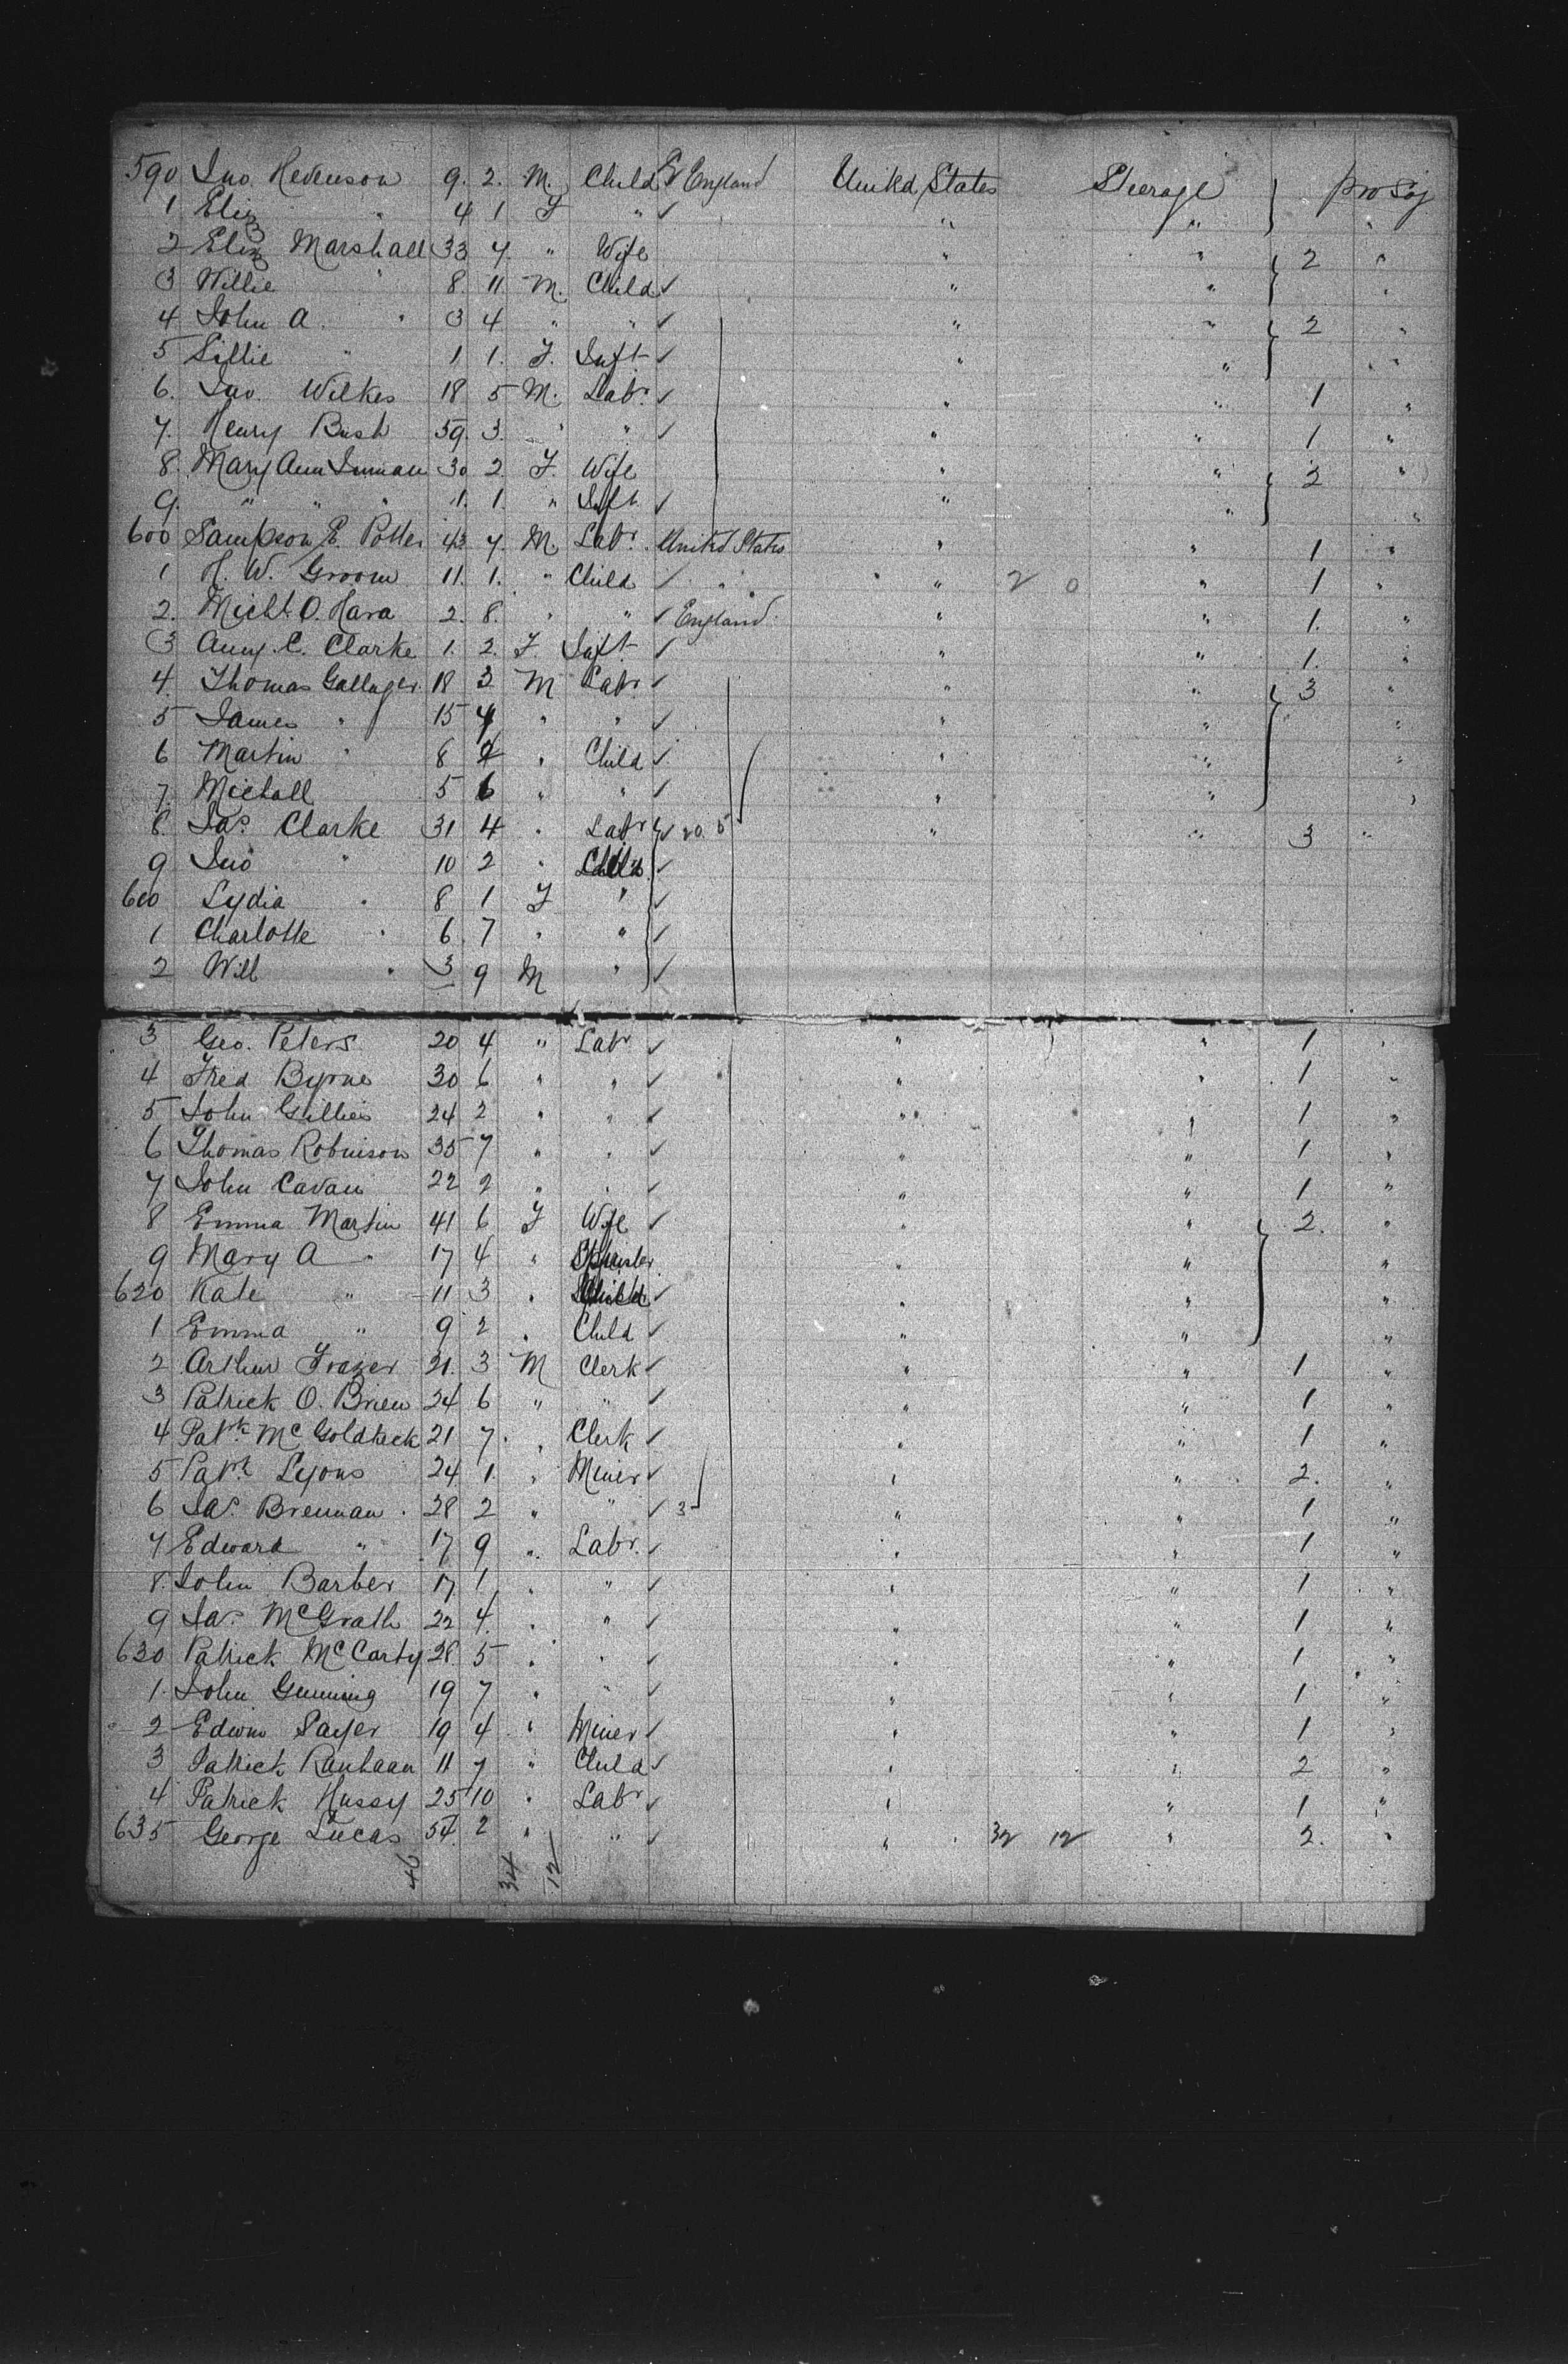 590 Jno. Hevenson 9. 2. M. Child ✓ England United States Steerage pro Soj
1 Eliz " 4 1 F " ✓ " " "
2 Eliz Marshall 33 7. " Wife " " 2 "
3 Willie " 8. 11 M. Child ✓ " " "
4 John A. " 3 4 " " ✓ " " 2 "
5 Lillie " 1 1. F. Inft ✓ " " "
6. Jno. Wilkes 18 5 M. Labr. ✓ " " 1 "
7. Henry Bush 59. 3. " " ✓ " " 1 "
8. Mary Ann Inman 30 2 F. Wife " " 2 "
9. " " " 1. 1. " Inft. ✓ " " "
600 Sampson E. Potter 43 7. M. Labr. United States " " 1 "
1 H. W. Groom 11. 1. " Child ✓ " " " 2 0 " 1 "
2. Michl. O. Hara 2. 8. " " ✓ England " " 1. "
3 Anny. C. Clarke 1. 2. F. Inft. ✓ " " 1. "
4. Thomas Gallager. 18 3 M Labr ✓ " " 3 "
5 James " 15 4 " " ✓ " " "
6 Martin " 8 2 " Child ✓ " " "
7. Michall 5 6 " " ✓ " " "
8. Jas. Clarke 31 4 " Labr ✓ 20. 5 " " 3 "
9 Jno " 10 2 " Child ✓
610 Lydia " 8 1 F " ✓
1 Charlotte " 6 7 " " ✓
2 Will " 3 9 M " ✓
3 Geo. Peters 20 4 " Labr ✓ " " 1 "
4 Fred Byrne 30 6 " " ✓ " " 1 "
5 John Gillies 24 2 " " ✓ " " 1 "
6 Thomas Robinson 35 7 " " ✓ " " 1 "
7 John Cavan 22 2 " " ✓ " " 1 "
8 Emma Martin 41 6 F Wife ✓ " " 2. "
9 Mary A " 17 4 " Spinster " " "
620 Kate " 11 3 " Child ✓ " " "
1 Emma " 9 2 " Child ✓ " " "
2 Arthur Frazer 21. 3 M Clerk ✓ " " 1 "
3 Patrick O. Brien 24 6 " " ✓ " " 1 "
4 Patk. McGoldrick 21 7. " Clerk ✓ " " 1 "
5 Patk. Lyons 24 1. " Miner ✓ " " 2. "
6 Jas. Brennan 28 2 " " ✓ 3 " " 1 "
7 Edward " 17 9 " Labr. ✓ " " 1 "
8. John Barber 17 1 " " ✓ " " 1 "
9 Jas. McGrath 22 4. " " ✓ " " 1 "
630 Patrick McCarty 28. 5 " " ✓ " " 1 "
1. John Gunning 19 7 " " ✓ " " 1 "
2 Edwin Sayer 19 4 " Miner ✓ " " 1 "
3 Patrick 11 7 " Child ✓ " " 2 "
4 Patrick Hussy 25 10 " Labr ✓ " " 1 "
635 George Lucas 54. 2 " " ✓ " 32 12 " 2. "
46 34 12